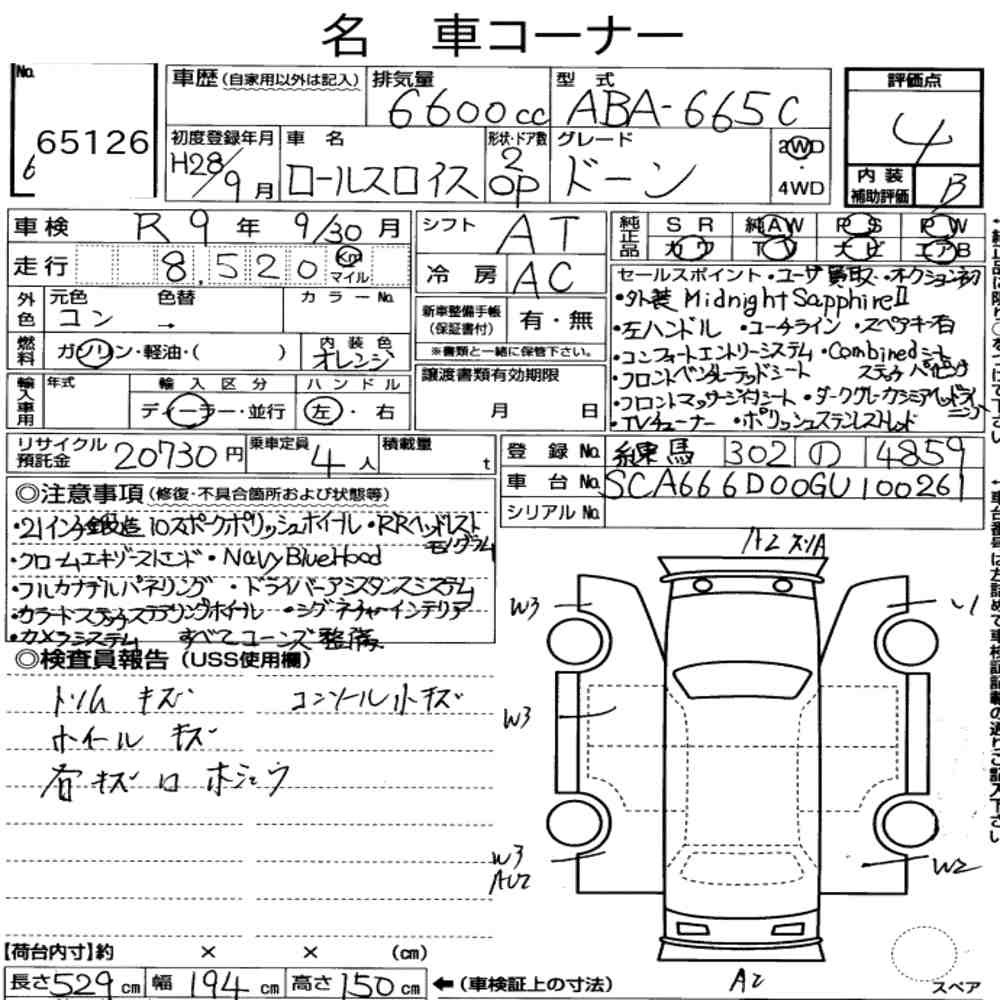 名 車コーナー
No. 65126
6
車歴 (自家用以外は記入)
排気量 6600cc
型式 ABA-665C
評価点 4
初度登録年月 H28/9月
車名 ロールスロイス
形状・ドア数 2 OP
グレード ドーン
2WD
・
4WD
内装補助評価 B
車検 R9年 9/30月
シフト AT
純正品 SR 純AW PS PW
カワ TV ナビ エアB
走行 8,520 km マイル
冷房 AC
セールスポイント・ユーザ買取・オークション初
・外装 Midnight SapphireⅡ
外色 元色 コン → 色替 カラーNo.
新車整備手帳(保証書付) 有・無
※書類と一緒に保管下さい。
・左ハンドル ・コーチライン ・スペアキー有
燃料 ガソリン・軽油・( )
内装色 オレンジ
・コンフォートエントリーシステム・Combinedシート
・フロントベンチレーテッドシート
輸入車用 年式 輸入区分 ディーラー・並行
ハンドル 左・右
譲渡書類有効期限 月 日
・フロントマッサージ付シート
・TVチューナー ・ポリッシュステンレス
リサイクル預託金 20730円
乗車定員 4人
積載量 t
登録No. 練馬 302 の 4859
車台No. SCA666D00GU100261
シリアルNo.
◎注意事項 (修復・不具合箇所および状態等)
・21インチ鍛造10スポークポリッシュホイール・RRヘッドレストモノグラム
・クロームエキゾーストエンド・Navy Blue Hood
・フルカナデルパネリング ・ドライバーアシスタンスシステム
・カラードステッチステアリングホイール ・シグネチャーインテリア
・カメラシステム すべてコーンズ整備
◎検査員報告 (USS使用欄)
トリム キズ コンソール小キズ
ホイール キズ
各キズ ロ ホシュウ
A2 スリA
W3
W3
W3
AU2
W2
A2
【荷台内寸】約 × × (cm)
長さ529cm 幅194cm 高さ150cm ←(車検証上の寸法)
スペア